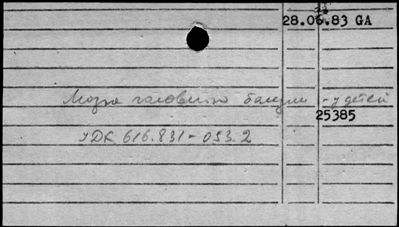 28.06.83 GA
Мозга головного болезни - у детей
25385
УДК 616.831-053.2